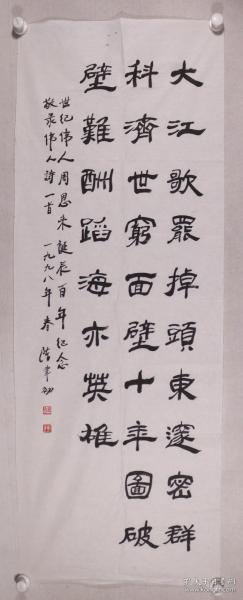 大江歌罷掉頭東邃密群
科濟世窮面壁十年圖破
壁難酬蹈海亦英雄
世纪伟人周恩来誕辰百年纪念
敬录伟人詩一首 一九九八年春